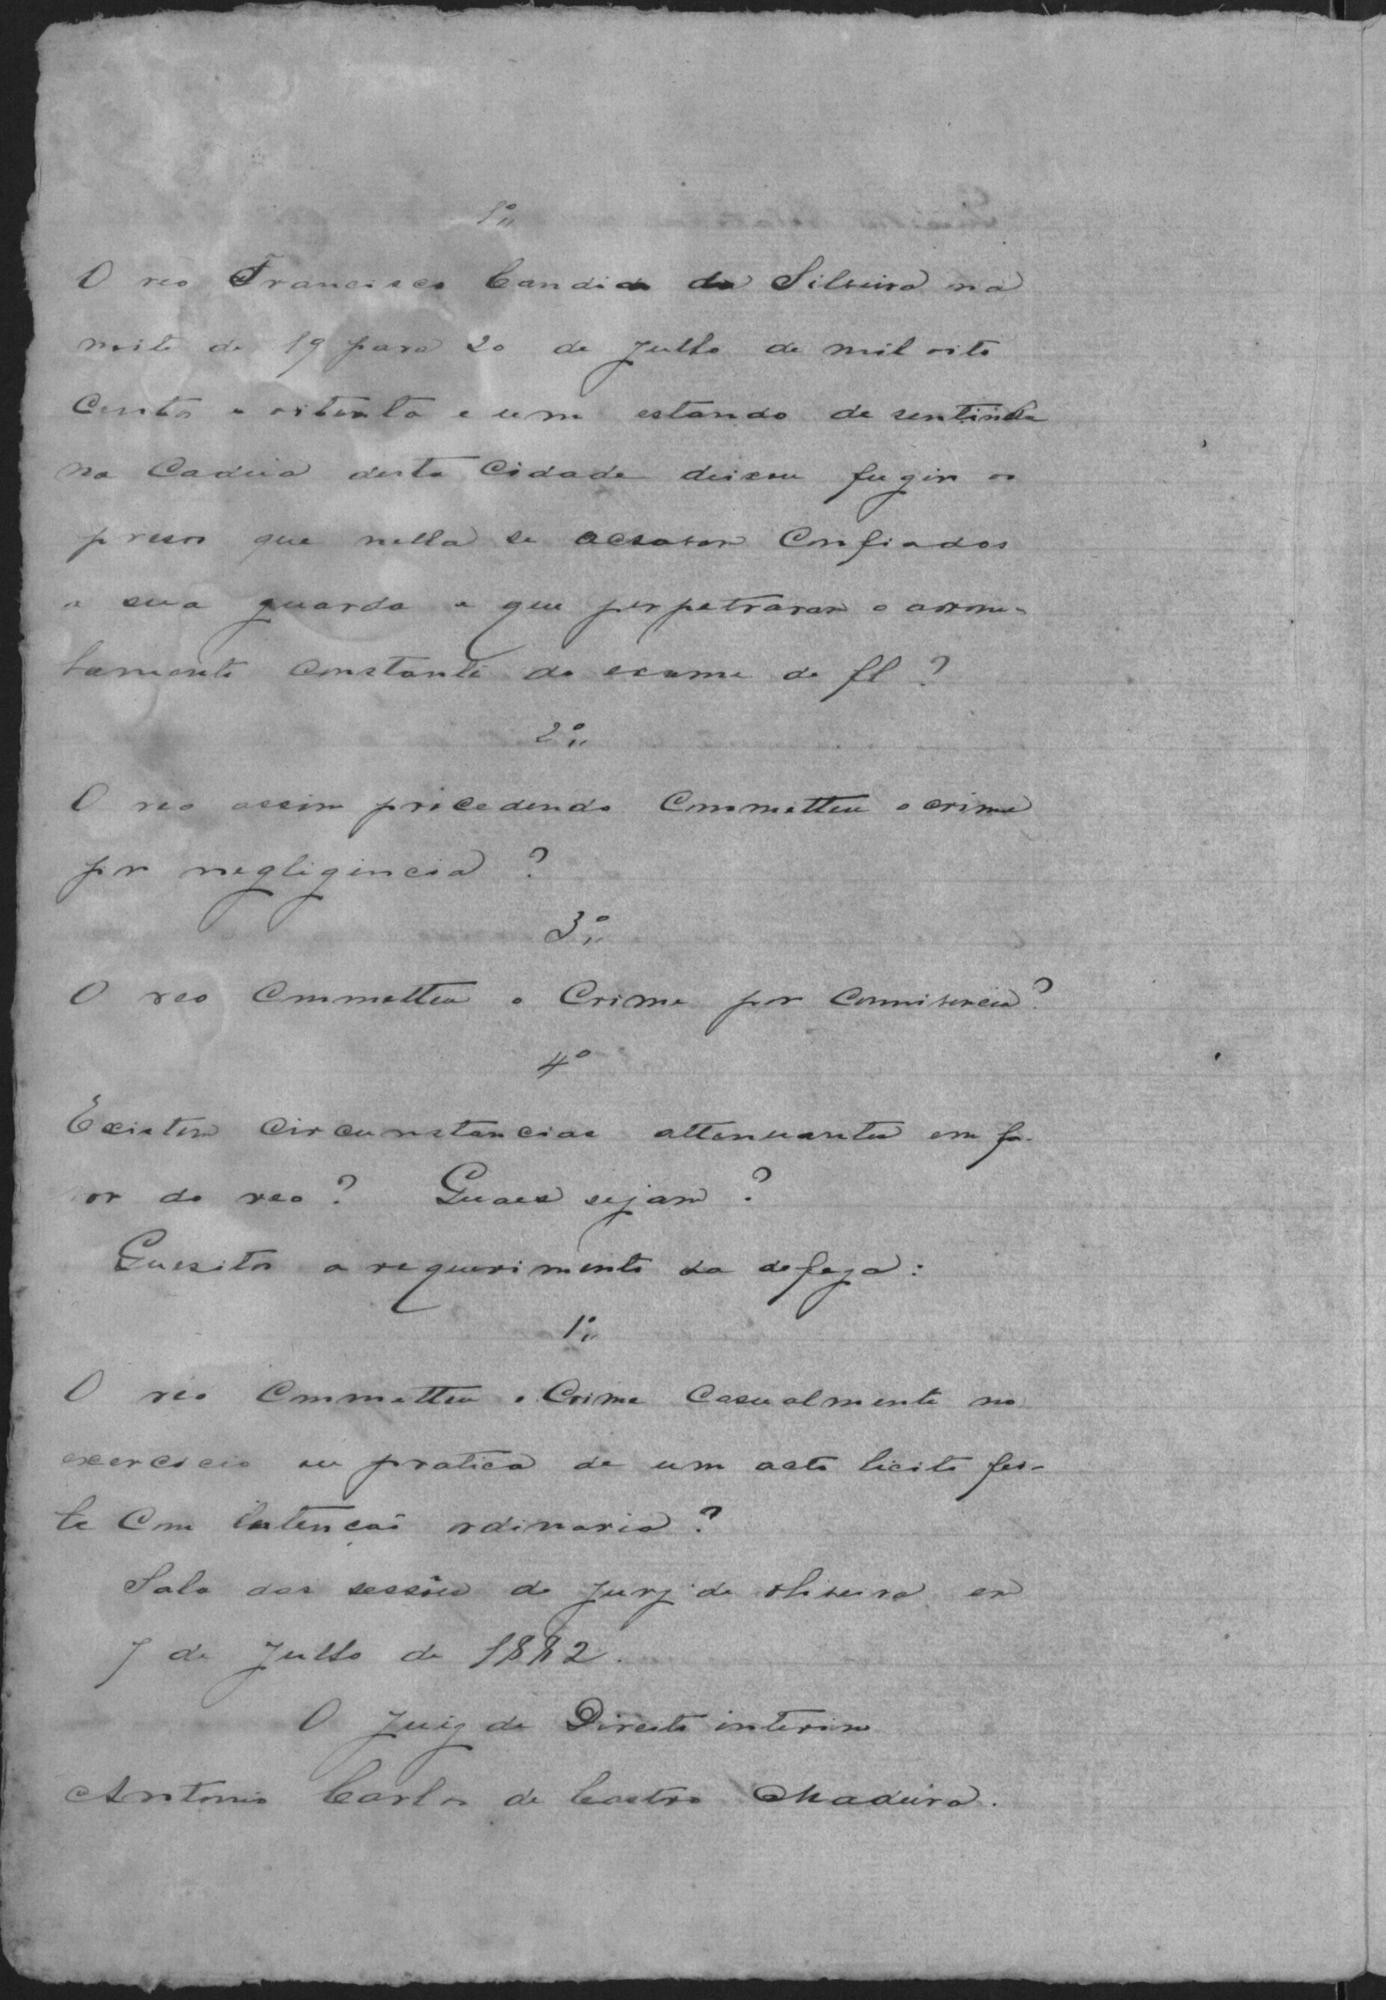 1º
O reo Francisco Candido da Silveira na
noite de 19 para 20 de Julho de mil oito
centos e oitenta e um estando de sentinella
na Cadeia desta Cidade deixou fugir os
presos que nella se achavam confiados
a sua guarda e que perpetraram o arrom-
bamento constante do exame de fl ?
2º
O reo assim procedendo commetteu o crime
por negligencia ?
3º
O reo commetteu o crime por connivencia ?
4º
Existem circumstancias attenuantes em fa-
or do reo ? Quaes sejam ?
Quesitos a requerimento da defeza :
1º
O reo commetteu o crime casualmente no
exercicio ou pratica de um acto licito fei-
to com intenção ordinaria ?
Sala das sessões do Jury de Oliveira em
7 de Julho de 1882.
O Juiz de Direito interino
Antonio Carlos de Castro Madeira.